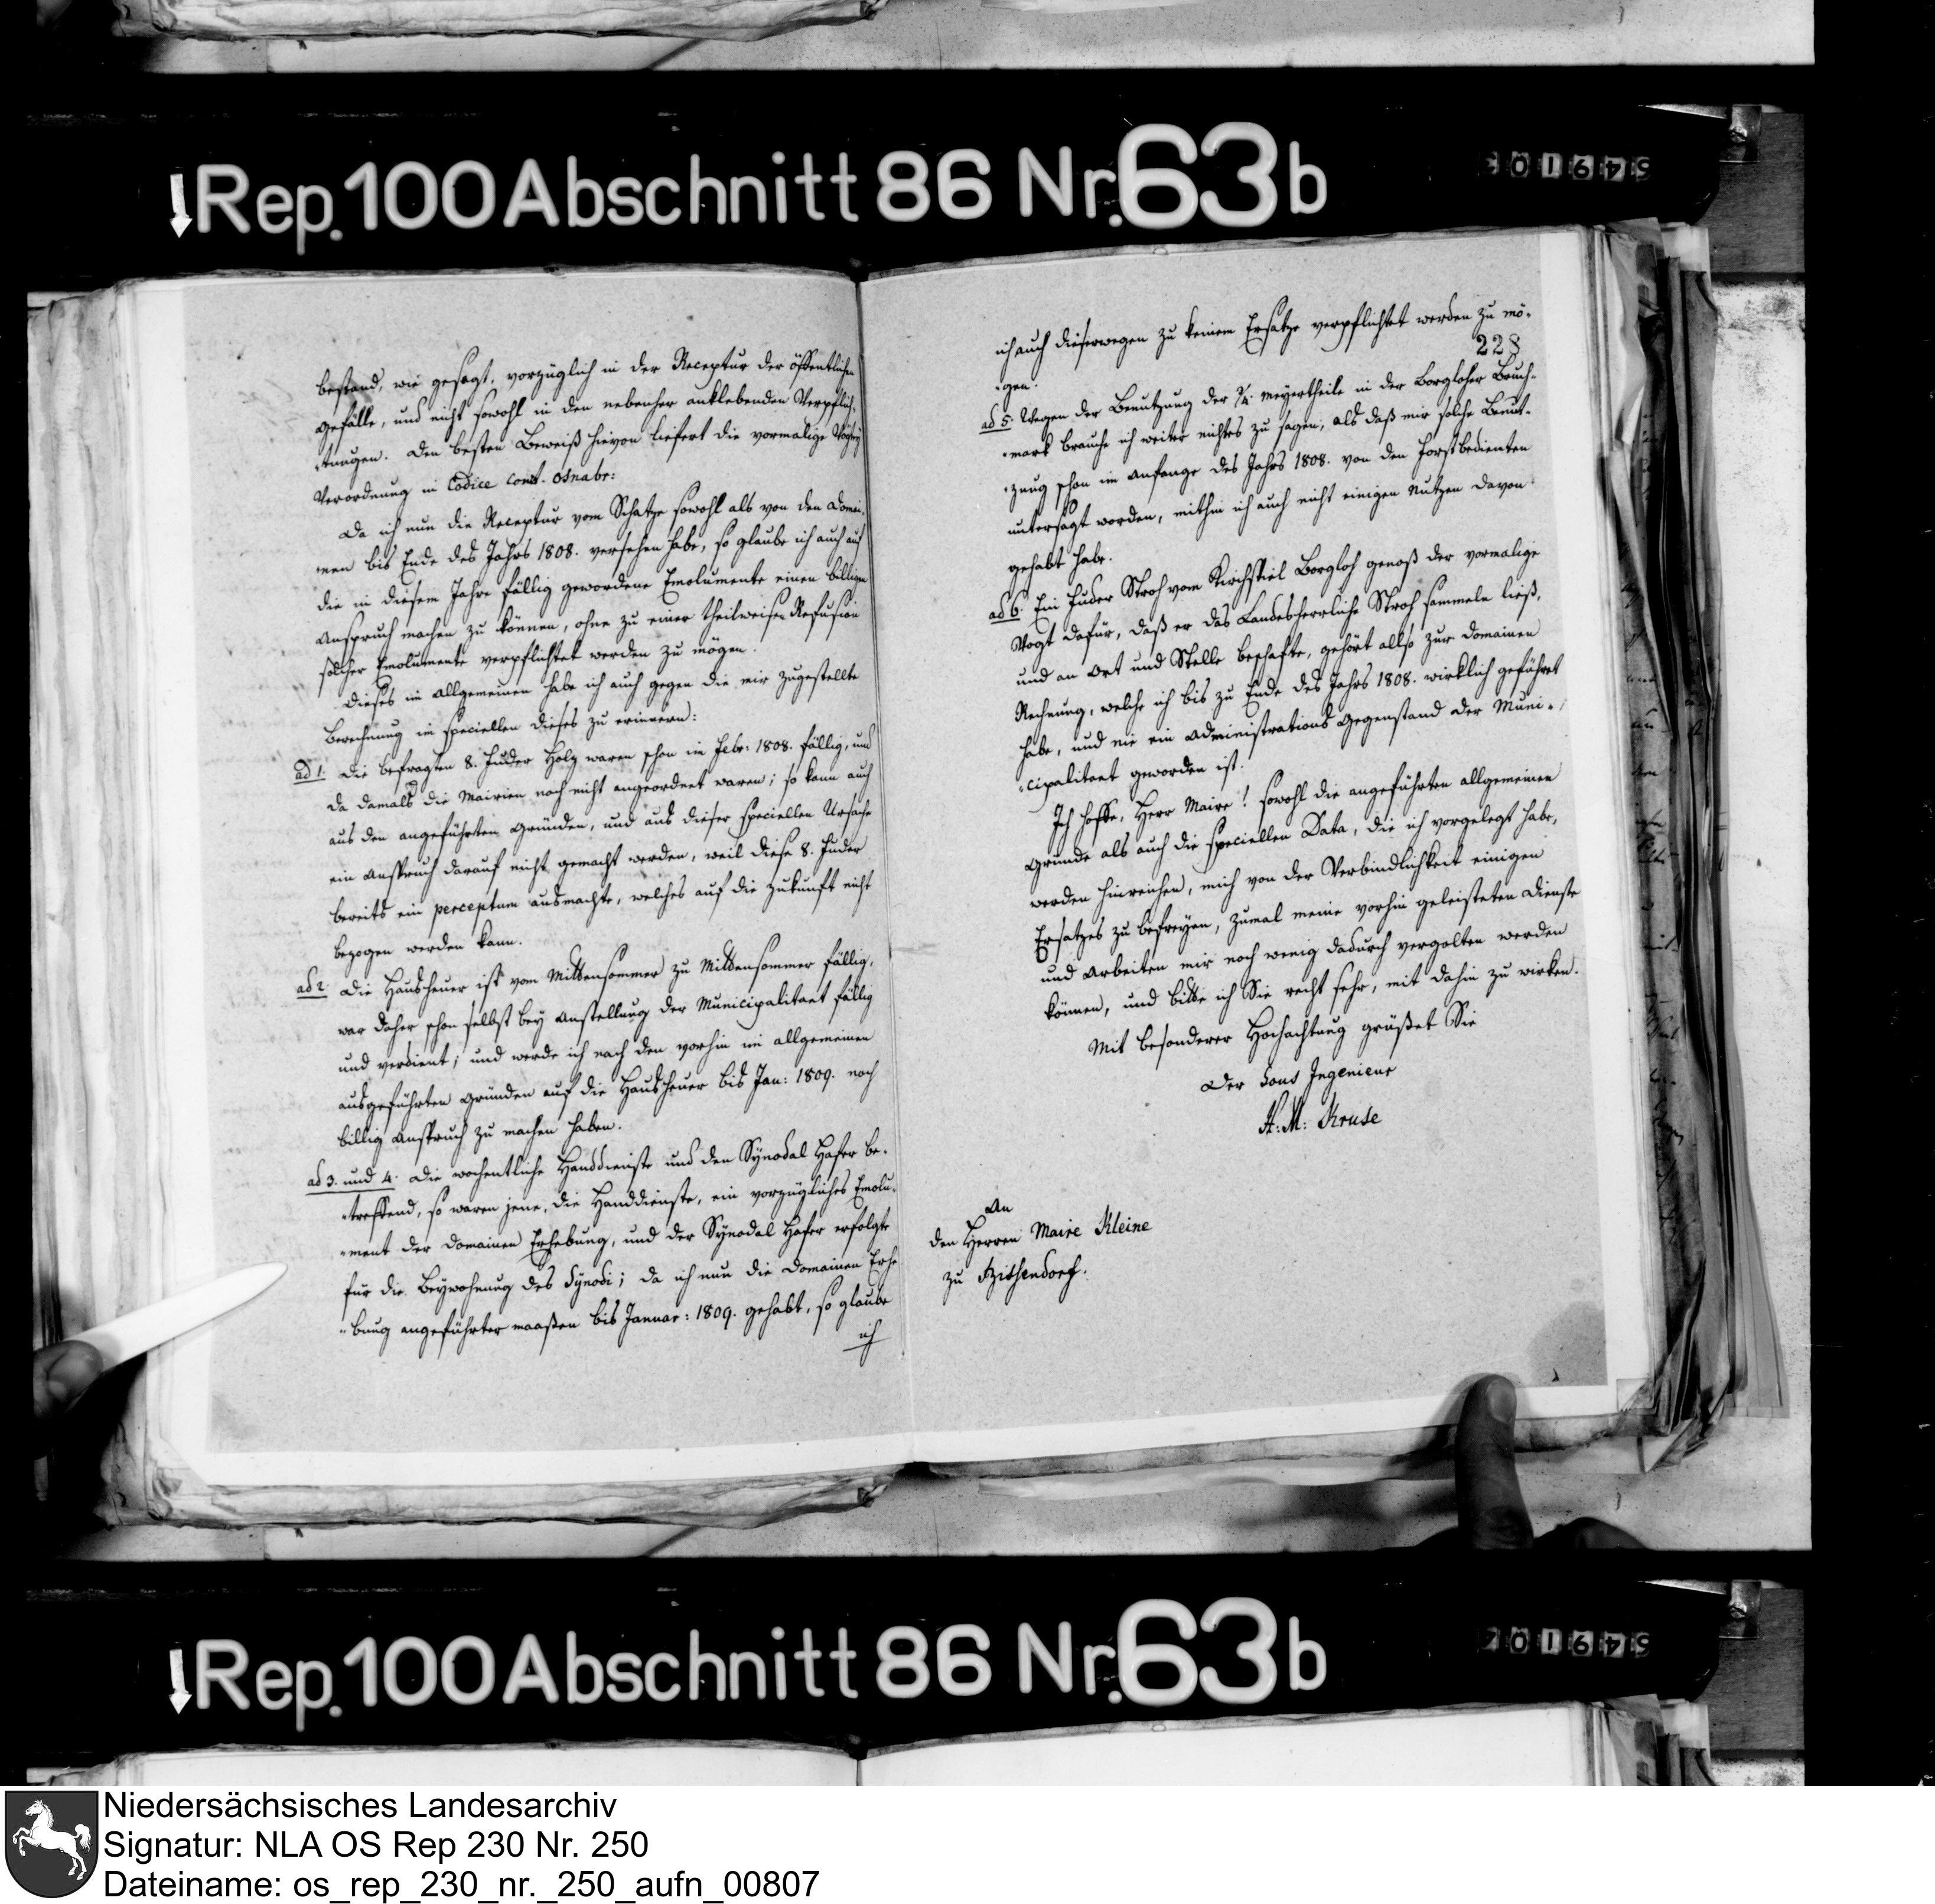 Rep. 100 Abschnitt 86 Nr. 63b
bestand, wie gesagt, vorzüglich in der Receptur der öffentlichen
Gefälle, und nicht sowohl in den nebenher anklebenden Verpflich-
-tungen. Den besten Beweiß hievon liefert die vormalige Vogtey
Verordnung in Codice const. Osnabr:
Da ich nun die Receptur vom Schatze sowohl als von den Domai-
-nen bis Ende des Jahrs 1808. versehen habe, so glaube ich auch auf
die in diesem Jahre fällig gewordene Emolumente einen billigen
Anspruch machen zu können, ohne zu einer theilweisen Refusion
solcher Emolumente verpflichtet werden zu mögen.
Dieses im Allgemeinen habe ich auch gegen die mir zugestellte
Berechnung im speciellen dieses zu erinnern:
ad 1. Die befragten 8. Fuder Holz waren schon im Febr: 1808. fällig, und
da damals die Mairien noch nicht angeordnet waren; so kann auch
aus den angeführten Gründen, und aus dieser speciellen Ursache
ein Anspruch darauf nicht gemacht werden, weil diese 8. Fuder
bereits ein perceptum ausmachte, welches auf die Zukunft nicht
bezogen werden kann.
ad 2. Die Hausheuer ist vom Mittensommer zu Mittensommer fällig,
war daher schon selbst bey Anstellung der Municipalitaet fällig
und verdient; und werde ich nach den vorhin im allgemeinen
ausgeführten Gründen auf die Hausheuer bis Jan: 1809. noch
billig Anspruch zu machen haben.
ad 3. und 4. Die wochentliche Handdienste und den Synodal Hafer be-
-treffend, so waren jene, die Handdienste, ein vorzügliches Emolu-
-ment der Domainen Erhebung, und der Synodal Hafer erfolgte
für die Beywohnung des Synodi; da ich nun die Domainen Erhe
-bung angeführter maaßen bis Januar: 1809. gehabt, so glaube
ich
ich auch dieserwegen zu keinem Ersatze verpflichtet werden zu mö-
228
-gen.
ad 5. Wegen der Benutzung der meyertheile in der Borgloher Bruch-
-mark brauche ich weiter nichts zu sagen, als daß mir solche Benut-
-zung schon im Anfange des Jahrs 1808. von den Forstbedienten
untersagt worden, mithin ich auch nicht einigen Nutzen davon
gehabt habe.
ad 6. Ein Fuder Stroh vom Kirchspiel Borgloh genoß der vormalige
Vogt dafür, daß er das Landesherrliche Stroh sammeln ließ,
und an Ort und Stelle beschafte, gehört allso zur Domainen
Rechnung, welche ich bis zu Ende des Jahrs 1808. wirklich geführt
habe, und nie ein Administrations Gegenstand der Muni-
-cipalitaet geworden ist.
Ich hoffe, Herr Maire! sowohl die angeführten allgemeinen
Gründe als auch die speciellen Data, die ich vorgelegt habe,
werden hinreichen, mich von der Verbindlichkeit einigen
Ersatzes zu befreyen, zumal meine vorhin geleisteten Dienste
und Arbeiten mir noch wenig dadurch vergolten werden
können, und bitte ich Sie recht sehr, mit dahin zu wirken.
Mit besonderer Hochachtung grüßet Sie
Der Sous Ingenieur
H: M: Kruse
An
den Herren Maire Kleine
zu
Rep. 100 Abschnitt 86 Nr. 63b
Niedersächsisches Landesarchiv
Signatur: NLA OS Rep 230 Nr. 250
Dateiname: os_rep_230_nr._250_aufn_00807